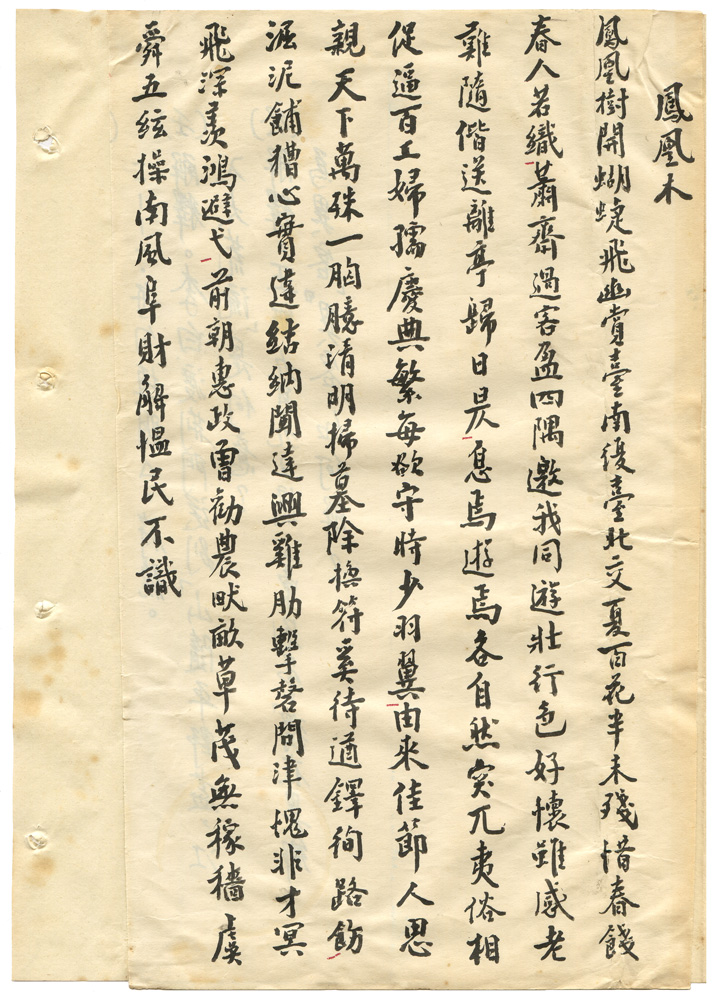 鳳凰木
鳳凰樹開蝴蝶飛幽賞臺南復臺北交夏百花半未殘惜春餞
春人若織蕭齋過客盈四隅邀我同遊壯行色好懷雖感老
難隨偕送離亭歸日昃息焉遊焉各自然突兀夷俗相
促逼百工婦孺慶典繁每欲守時少羽翼由來佳節人思
親天下萬殊一胸臆清明掃墓除換符奚待遒鐸徇路飭
淈泥餔糟心實違結納聞達興雞肋擊磬問津愧非才冥
飛深羨鴻避弋前朝惠政曾勸農畎畝草茂無稼穡虞
舜五絃操南風阜財解慍民不識